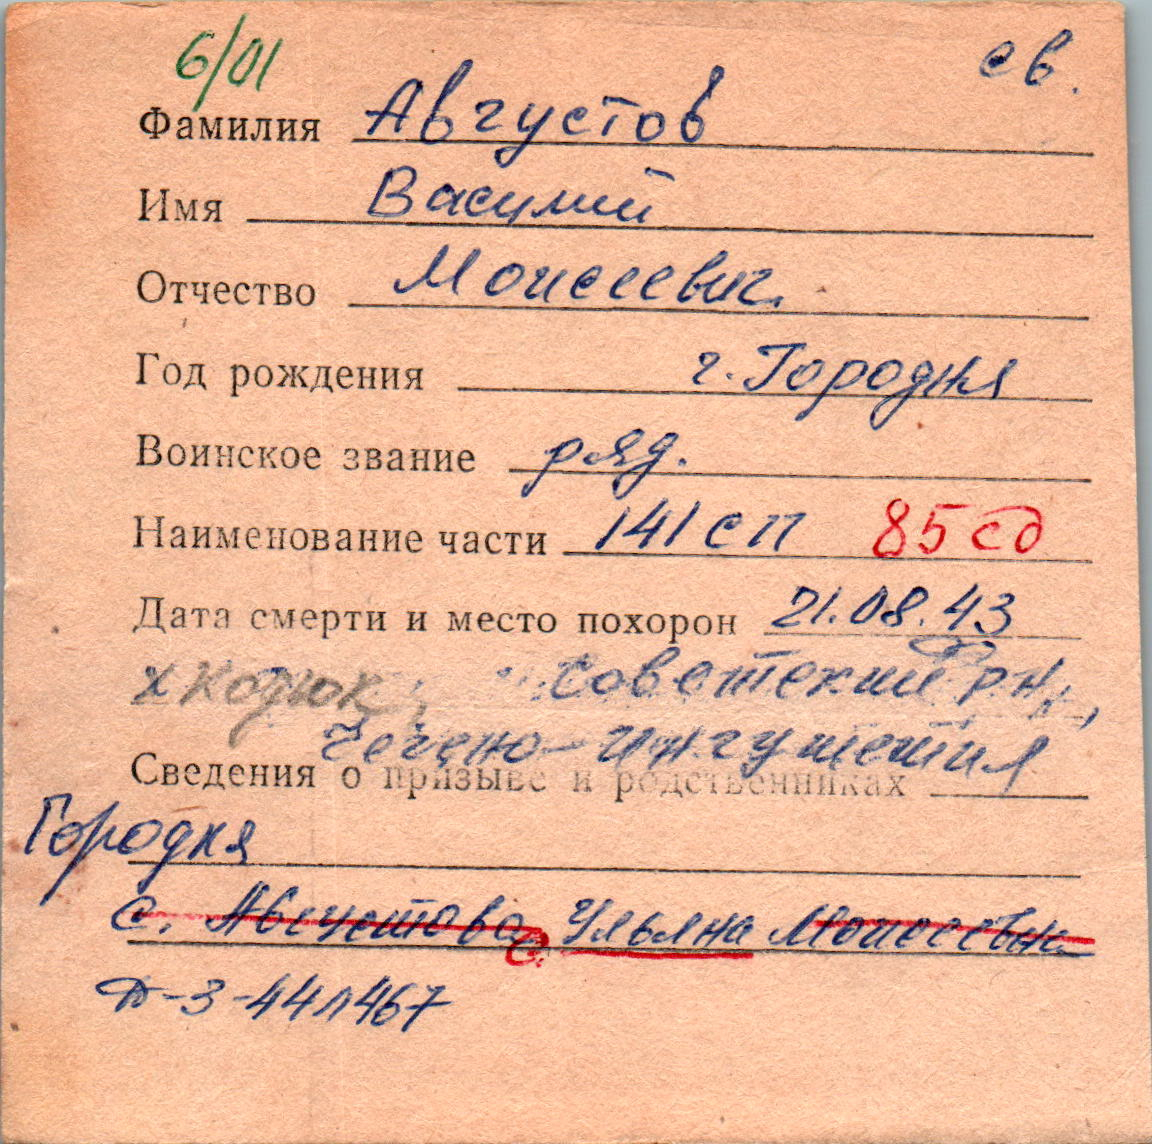 6/01
св.
Фамилия Августов
Имя Василий
Отчество Моисеевич.
Год рождения г. Городня
Воинское звание ряд.
Наименование части 141 сп 85 сд
Дата смерти и место похорон 21.08.43
х Кодюк, Советский рн,
Чечено-Ингушетия
Сведения о призыве и родственниках
Городня
с. Августова Ульяна Моисеевн.
с.
Д-3-44л467